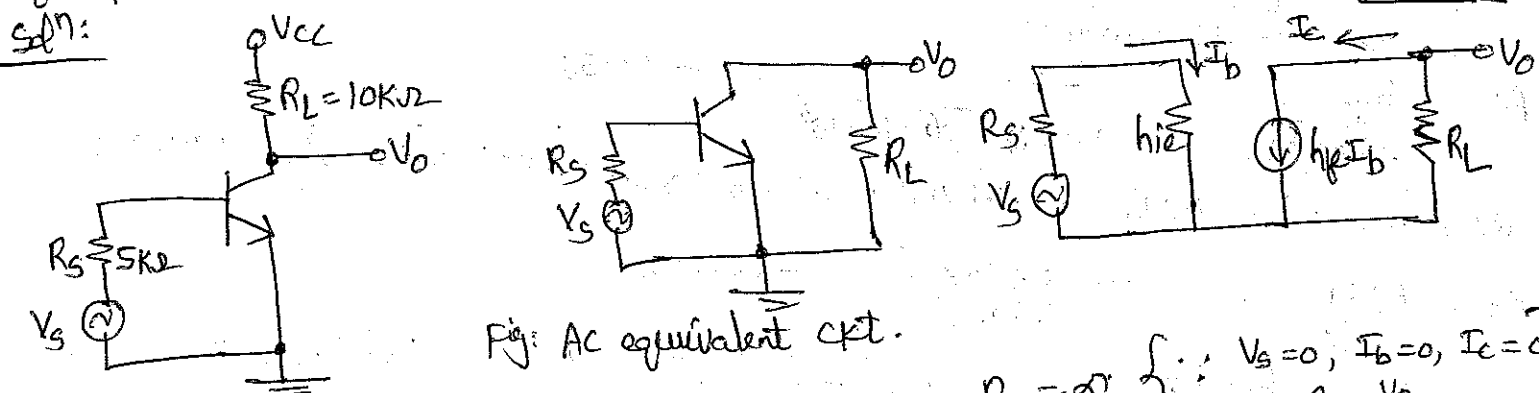 Solⁿ:
VCC
R_L = 10KΩ
V_O
R_S 5KΩ
V_S
V_O
R_S
R_L
V_S
Fig: AC equivalent ckt.
I_b
I_c
V_O
R_S
hie
hfeI_b
R_L
V_S
{∵ V_S=0, I_b=0, I_c=0